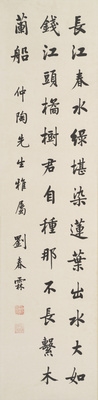 長江春水綠堪染蓮葉出水大如
錢江頭橘樹君自種那不長繫木
蘭船 仲陶先生雅屬 劉春霖